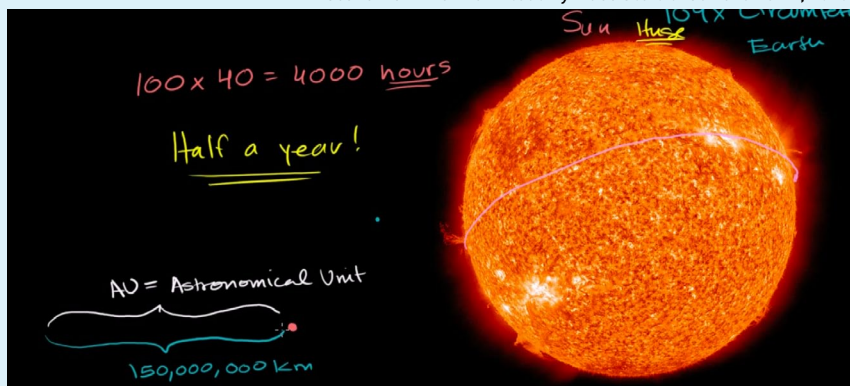 Sun Huge 109x Circumfer
Earth
100 x 40 = 4000 hours
Half a year!
AU = Astronomical Unit
150,000,000 km